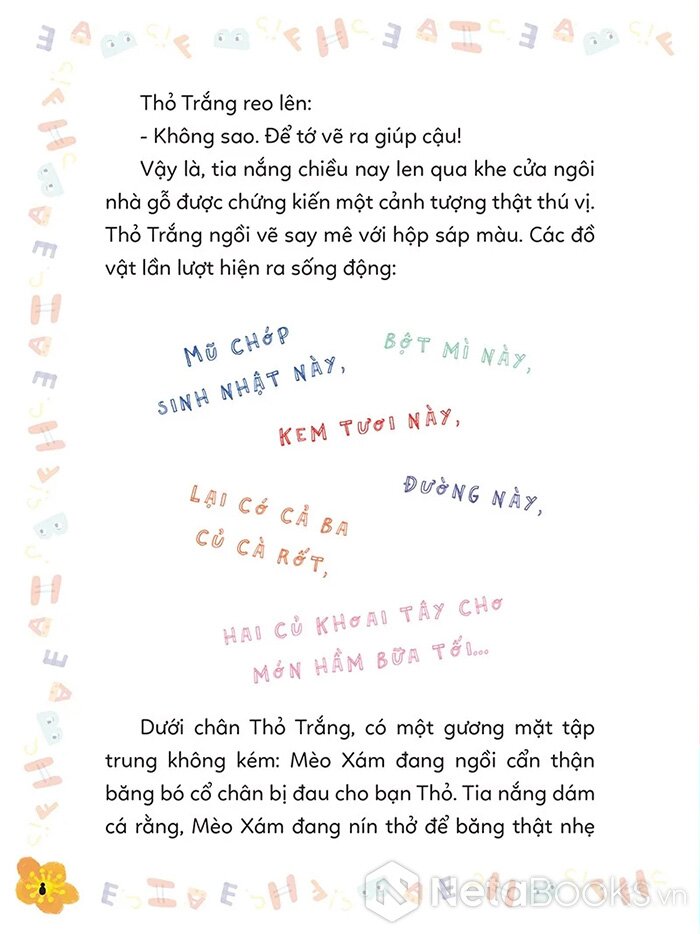 Thỏ Trắng reo lên:
- Không sao. Để tớ vẽ ra giúp cậu!
Vậy là, tia nắng chiều nay len qua khe cửa ngôi
nhà gỗ được chứng kiến một cảnh tượng thật thú vị.
Thỏ Trắng ngồi vẽ say mê với hộp sáp màu. Các đồ
vật lần lượt hiện ra sống động:
MŨ CHÓP
SINH NHẬT NÀY,
BỘT MÌ NÀY,
KEM TƯƠI NÀY,
ĐƯỜNG NÀY,
LẠI CÓ CẢ BA
CỦ CÀ RỐT,
HAI CỦ KHOAI TÂY CHO
MÓN HẦM BỮA TỐI...
Dưới chân Thỏ Trắng, có một gương mặt tập
trung không kém: Mèo Xám đang ngồi cẩn thận
băng bó cổ chân bị đau cho bạn Thỏ. Tia nắng dám
cá rằng, Mèo Xám đang nín thở để băng thật nhẹ
NetaBooks.vn